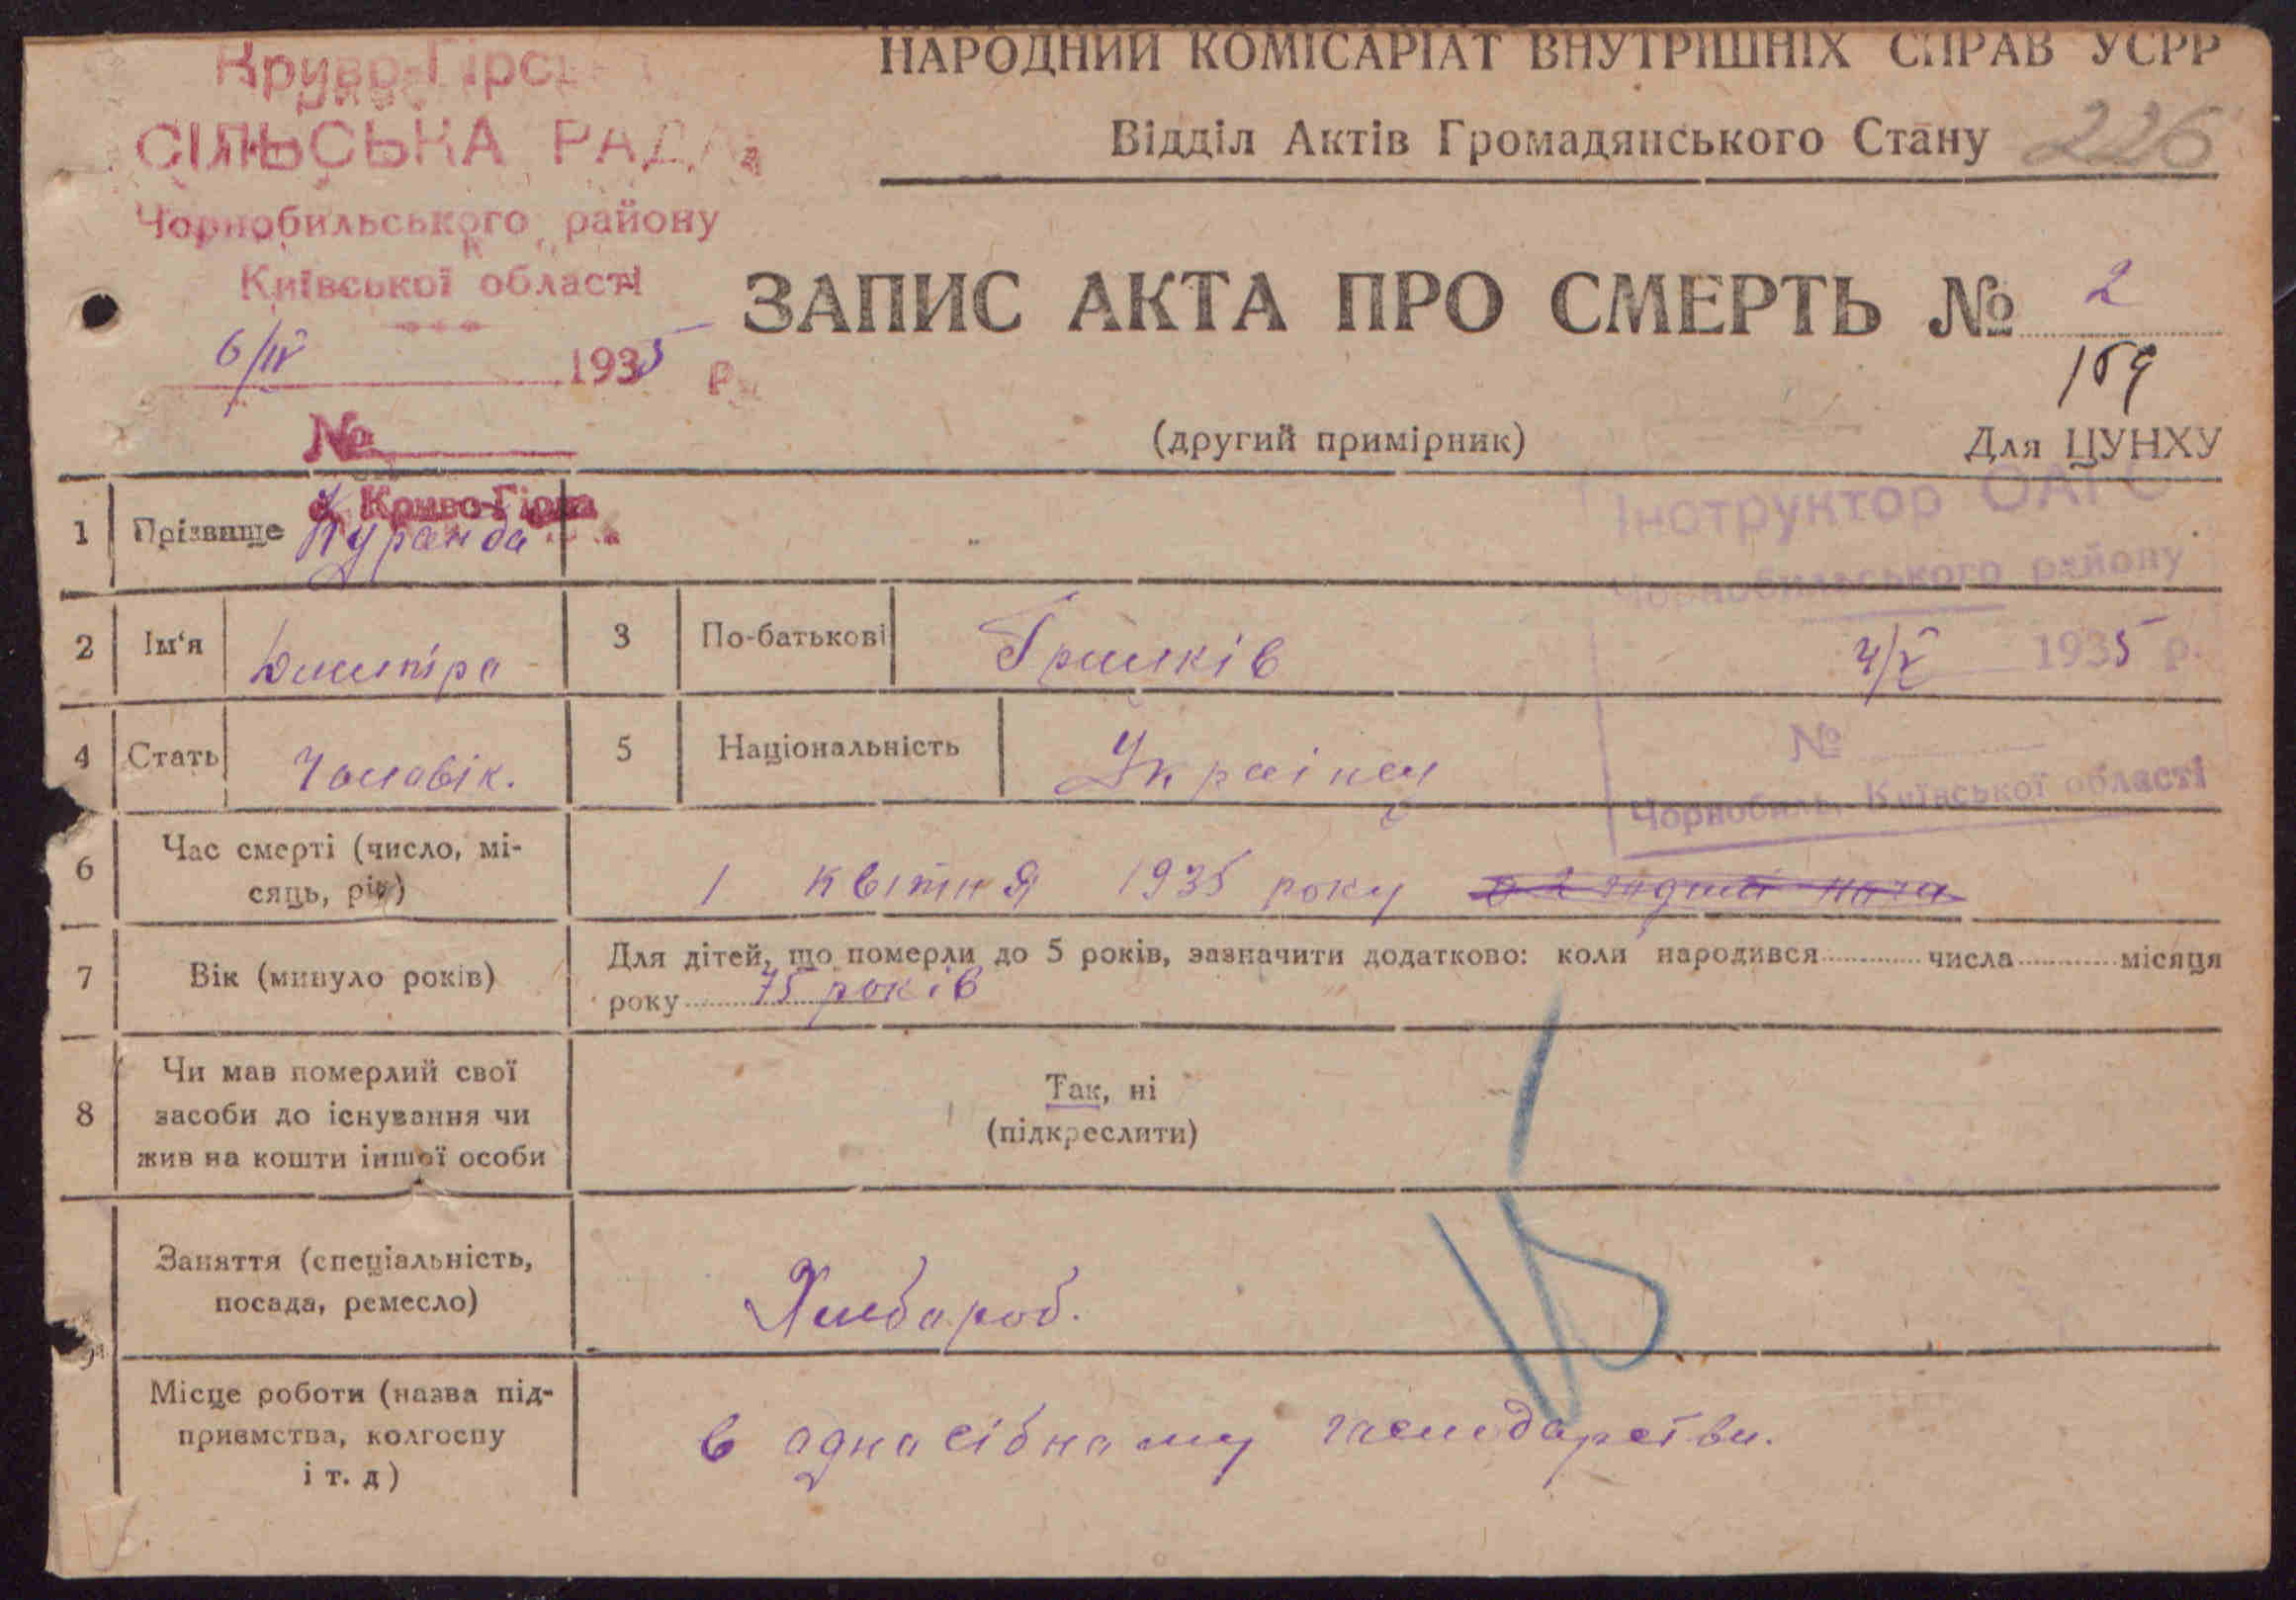 Криво-Гірська
СІЛЬСЬКА РАДА
Чорнобильського району
Київської області
6/IV 1935 р.
№
с. Криво-Гірка
НАРОДНИЙ КОМІСАРІАТ ВНУТРІШНІХ СПРАВ УСРР
Відділ Актів Громадянського Стану 226
ЗАПИС АКТА ПРО СМЕРТЬ № 2
159
(другий примірник) Для ЦУНХУ
Інструктор ОАГС
Чорнобильського району
4/V 1935 р.
№
Чорнобиль, Київської області
1 Прізвище Куранда
2 Ім'я Дмитра 3 По-батькові Грицьків
4 Стать Чоловік. 5 Національність Украінец
6 Час смерті (число, мі-
сяць, рік) 1 квітня 1935 року
7 Вік (минуло років) Для дітей, що померли до 5 років, зазначити додатково: коли народився числа місяця
року 75 років
8 Чи мав померлий свої
засоби до існування чи
жив на кошти іншої особи
Так, ні
(підкреслити)
9 Заняття (спеціальність,
посада, ремесло) Хлібароб.
Місце роботи (назва під-
приємства, колгоспу
і т. д) в аднасібнаму